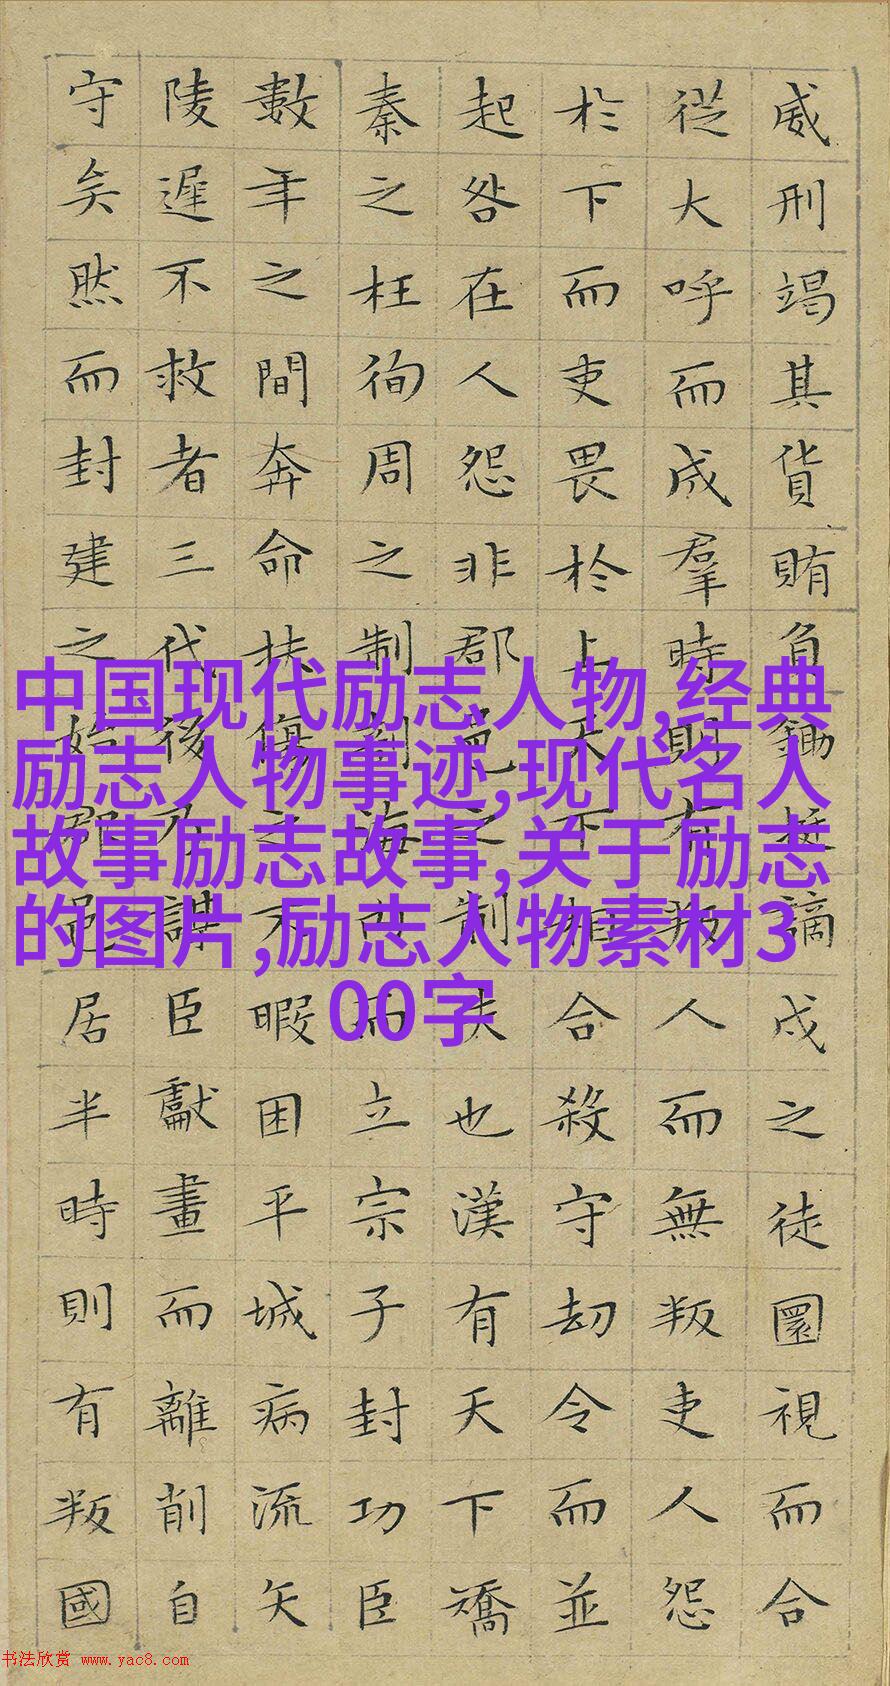 威刑竭其貨賄負鋤梃謫戍之徒圜視而合
從大呼而成羣時則有叛人而無叛吏人怨
於下而吏畏於上天下相合殺守劫令而並
起咎在人怨非郡邑之制失也漢有天下矯
秦之枉徇周之制剖海內而立宗子封功臣
數年之間奔命扶傷之不暇困平城病流矢
陵遲不救者三代後乃謀臣獻畫而離削自
守矣然而封建之始郡邑居半時則有叛國
中国现代励志人物,经典
励志人物事迹,现代名人
故事励志故事,关于励志
的图片,励志人物素材3
00字
书法欣赏 www.yac8.com